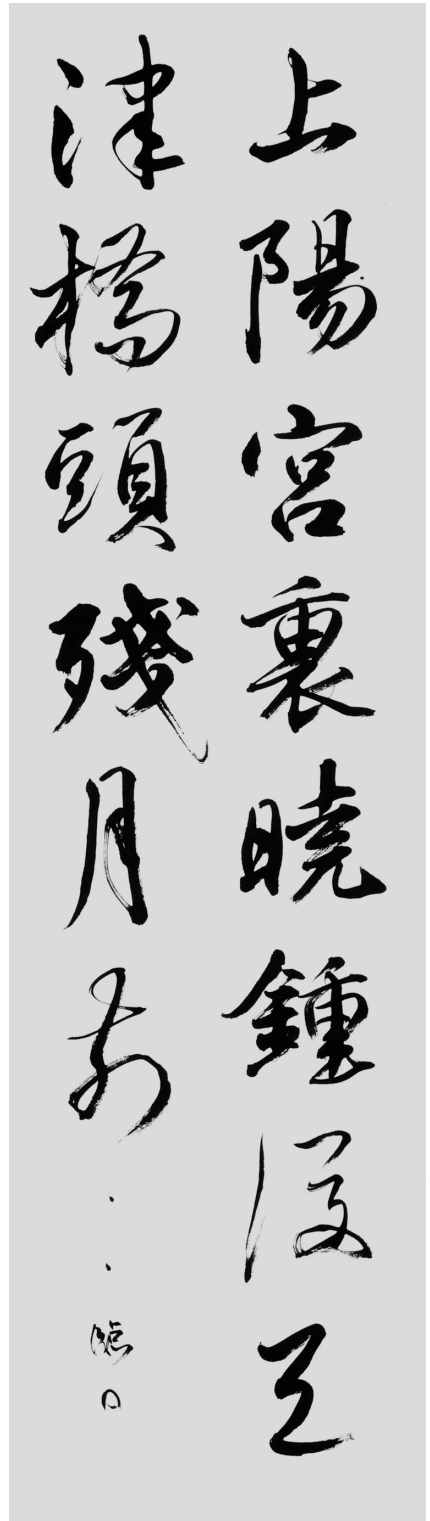 上陽宮裏曉鍾後天
津橋頭殘月前
臨